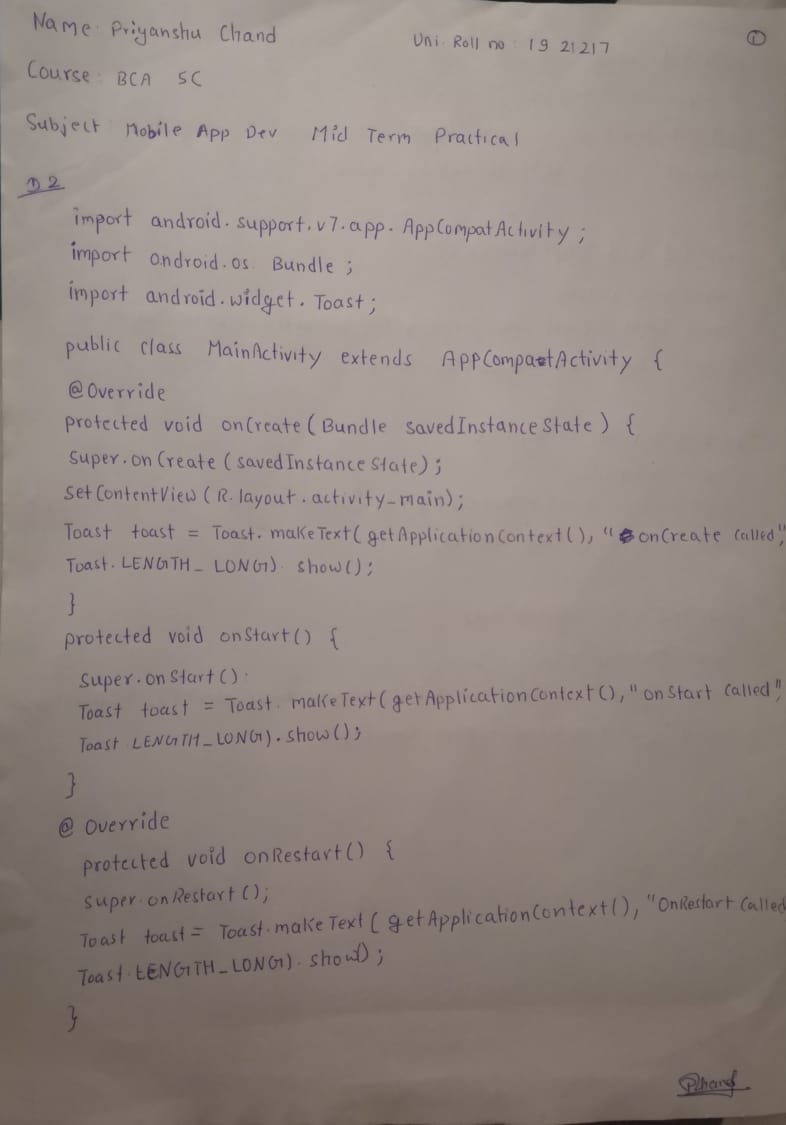 Name: Priyanshu Chand
Uni. Roll no: 19 21217
1
Course: BCA 5C
Subject: Mobile App Dev Mid Term Practical
2
import android.support.v7.app.AppCompatActivity;
import android.os. Bundle;
import android.widget.Toast;
public class MainActivity extends AppCompatActivity {
@Override
protected void onCreate(Bundle savedInstanceState) {
Super.onCreate(savedInstanceState);
SetContentView(R.layout.activity_main);
Toast toast = Toast.makeText(getApplicationContext(), "onCreate Called",
Toast.LENGTH_LONG).show();
}
protected void onStart() {
Super.onStart().
Toast toast = Toast.makeText(getApplicationContext(), "onStart Called",
Toast LENGTH_LONG).show();
}
@Override
protected void onRestart() {
super.onRestart();
Toast toast = Toast.makeText(getApplicationContext(), "OnRestart Called
Toast.LENGTH_LONG).show();
}
PChand